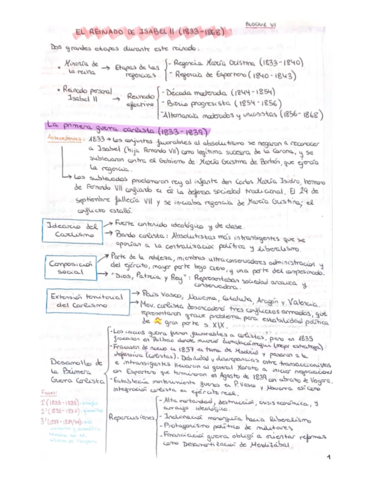 BLOQUE VI
EL REINADO DE ISABEL II (1833-1868)
Dos grandes etapas durante este reinado.
• Minoría de la reina → Etapas de las regencias
- Regencia María Cristina (1833-1840)
- Regencia de Espartero (1840-1843)
• Reinado personal Isabel II → Reinado efectivo
- Década moderada (1844-1854)
- Bienio progresista (1854-1856)
- Alternancia moderados y unionistas (1856-1868)
La primera guerra carlista (1833-1839)
Antecedentes: 1833 → Los conjuntos favorables al absolutismo se negaron a reconocer
a Isabel (hija Fernando VII) como legítima sucesora de la Corona, y se
sublevaron contra el Gobierno de María Cristina de Borbón, que ejercía
la regencia.
Los sublevados proclamaron rey al infante don Carlos María Isidro, hermano
de Fernando VII la defensa sociedad tradicional. El 29 de
septiembre fallecía VII y se iniciaba regencia de María Cristina; el
conflicto estalló.
Ideario del Carlismo
Fuerte contenido ideológico y de clase.
Bando carlista: Absolutistas más intransigentes que se
oponían a la centralización política y liberalismo.
Composición social
Parte de la nobleza, miembros ultraconservadores administración y
del ejército, mayor parte bajo clero, y una parte del campesinado.
"Dios, Patria y Rey": Representaban sociedad arcaica y
conservadora.
Extensión territorial del Carlismo
País Vasco, Navarra, Cataluña, Aragón y Valencia.
Mov. carlista desencadenó tres conflictos armados, que
representaron grave problema para estabilidad política
de gran parte s. XIX.
Desarrollo de la Primera Guerra Carlista
Los inicios guerra fueron favorables a carlistas, pero en 1835
fracasaron en Bilbao donde murió Zumalacárregui
Fracasaron de nuevo en 1837 en toma de Madrid y pasaron a la
defensiva (carlistas). Debilidad y discrepancias entre transaccionistas
e intransigentes llevaron al general Maroto a iniciar negociaciones
con Espartero que terminaron en Agosto de 1839 en abrazo de Vergara.
Establecía mantenimiento fueros en P. Vasco y Navarra así como
integración carlistas en ejército real.
Fases:
1ª (1833-1835)
2ª (1835-1837)
Repercusiones
- Alta mortandad, destrucción, crisis económica, y
ideológico
- Inclinación monarquía hacia liberalismo
- Protagonismo político de militares
- Financiación guerra obligó a reformas
como Desamortización de Mendizábal.
1